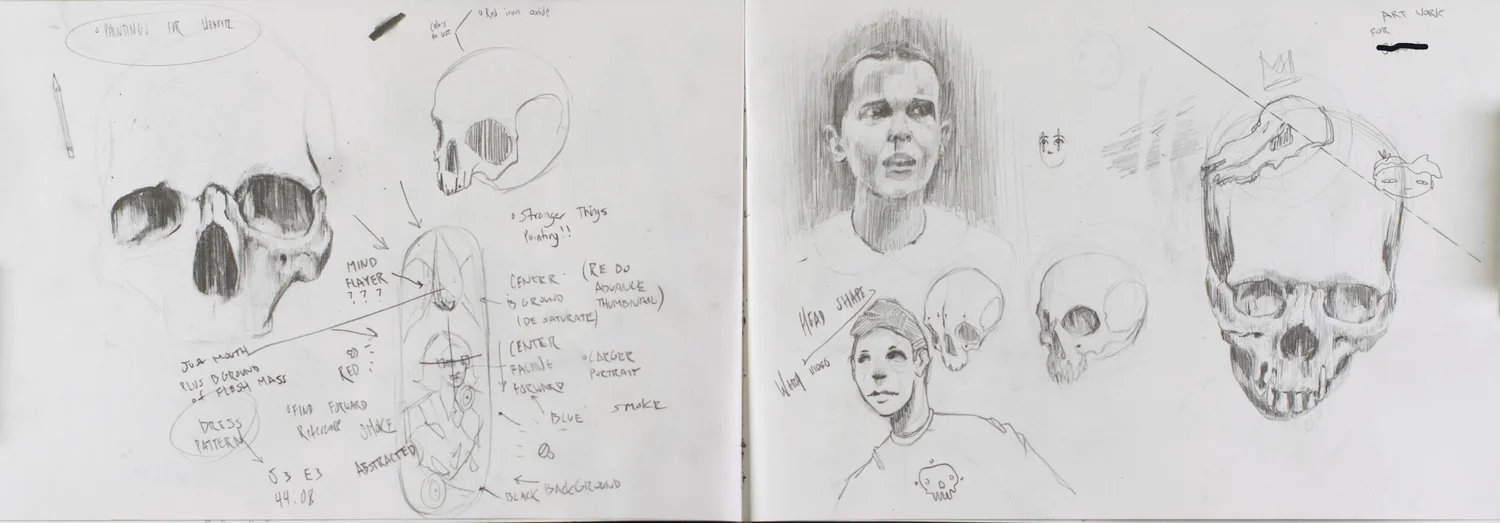 PAINTINGS FOR WEBSITE
COLORS
TO USE
Red iron oxide
Stranger Things
Painting!!
MIND
FLAYER
???
CENTER
BGROUND
(DE SATURATE)
(RE DO
ADVANCE
THUMBNAIL)
JUST MOUTH
PLUS BGROUND
of FLESH MASS
RED
CENTER
FACING
FORWARD
LARGER
PORTRAIT
DRESS
PATTERN
FIND FORWARD
Reference
SMOKE
BLUE
SMOKE
ABSTRACTED
S3 E3
44.08
BLACK BACKGROUND
ART WORK
FOR
HEAD SHAPE
WHAY VIDEO